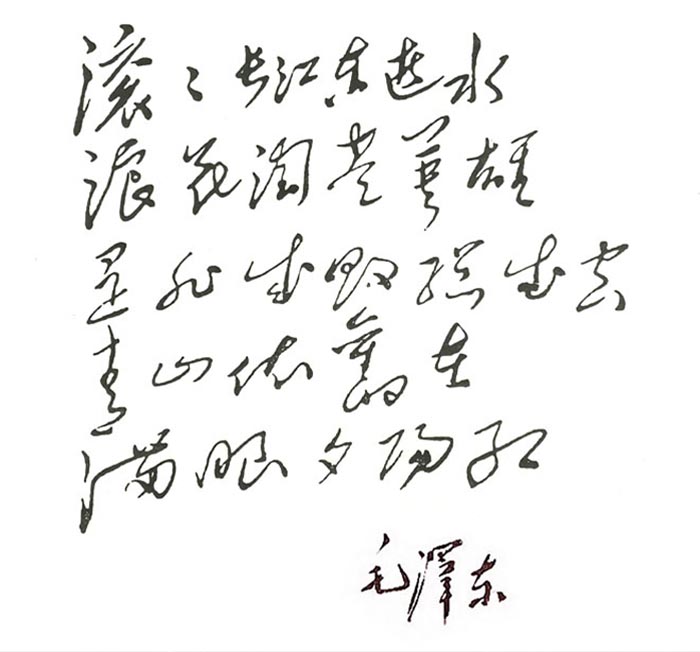 滚〻长江东逝水
浪花淘尽英雄
是非成败總成空
青山依舊在
满眼夕陽红
毛澤东